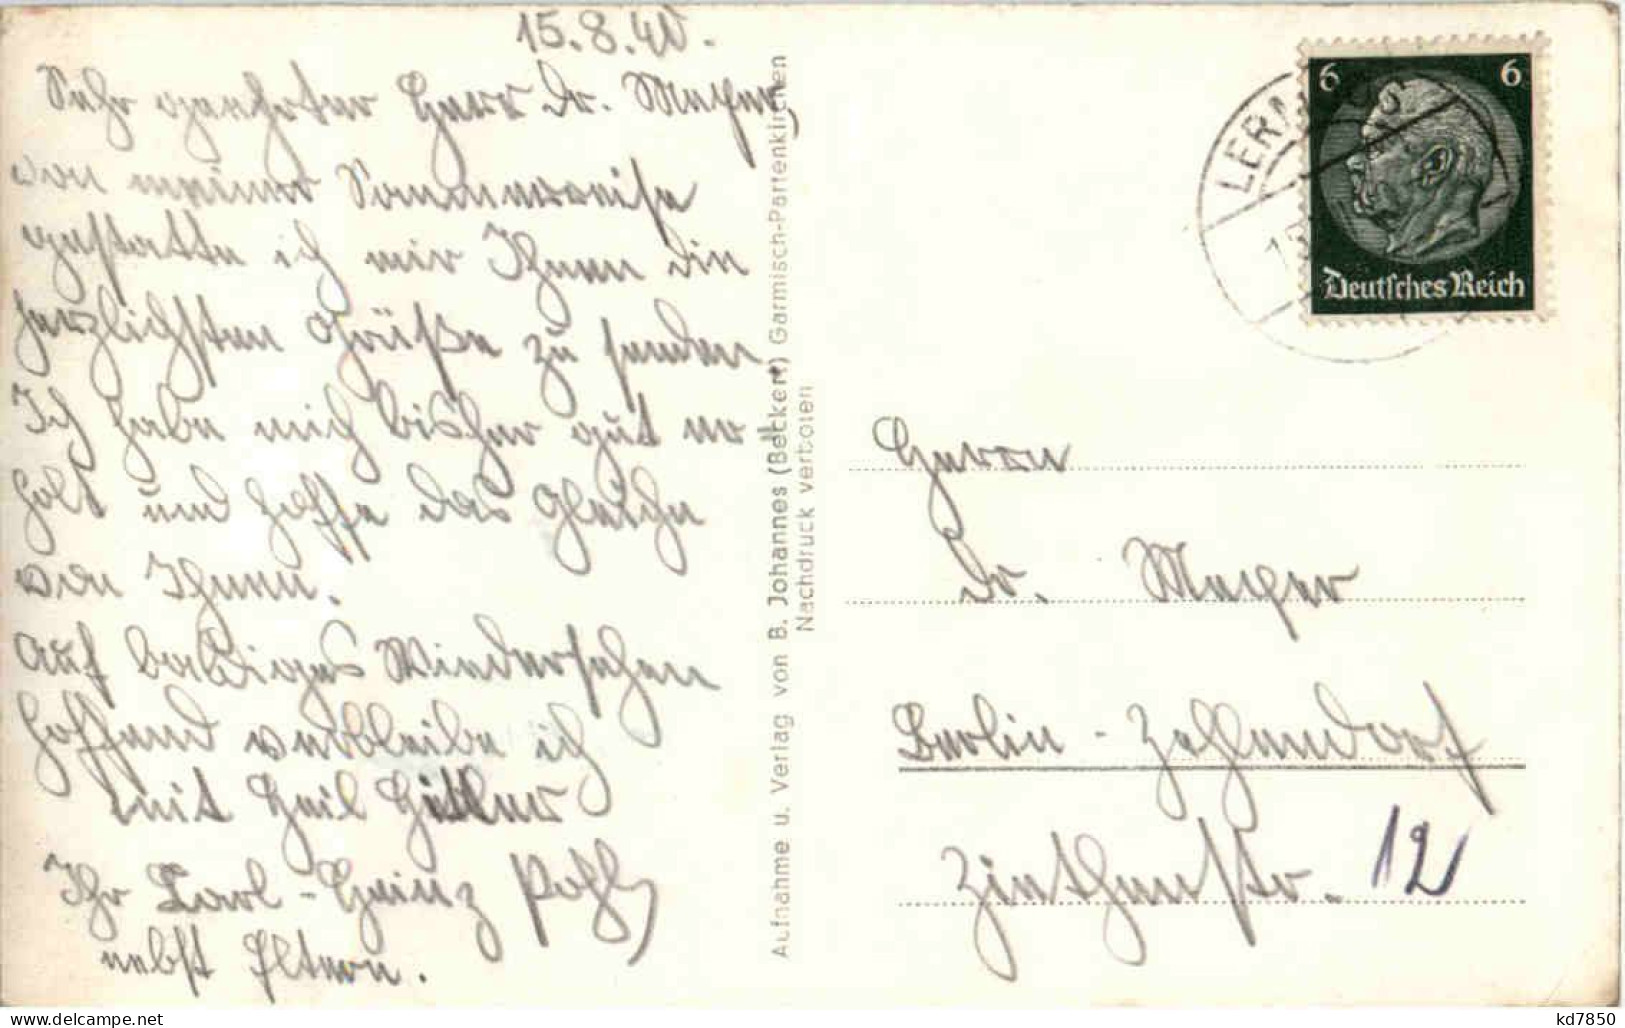 15.8.40.
Sehr geehrter Herr Dr. Meyer,
von meiner Sommerreise
gestatte ich mir Ihnen die
herzlichsten Grüße zu senden.
Ich habe mich bisher gut er-
holt und hoffe das Gleiche
von Ihnen.
Auf baldiges Wiedersehen
hoffend verbleibe ich
mit Heil Hitler
Ihr Karl-Heinz Pohl,
nebst Eltern.
Aufnahme u. Verlag von B. Johannes (Beckert) Garmisch-Partenkirchen
Nachdruck verboten
6 6
Deutsches Reich
Herrn
Dr. Meyer
Berlin-Zehlendorf
Zinthenstr. 12
www.delcampe.net
kd7850